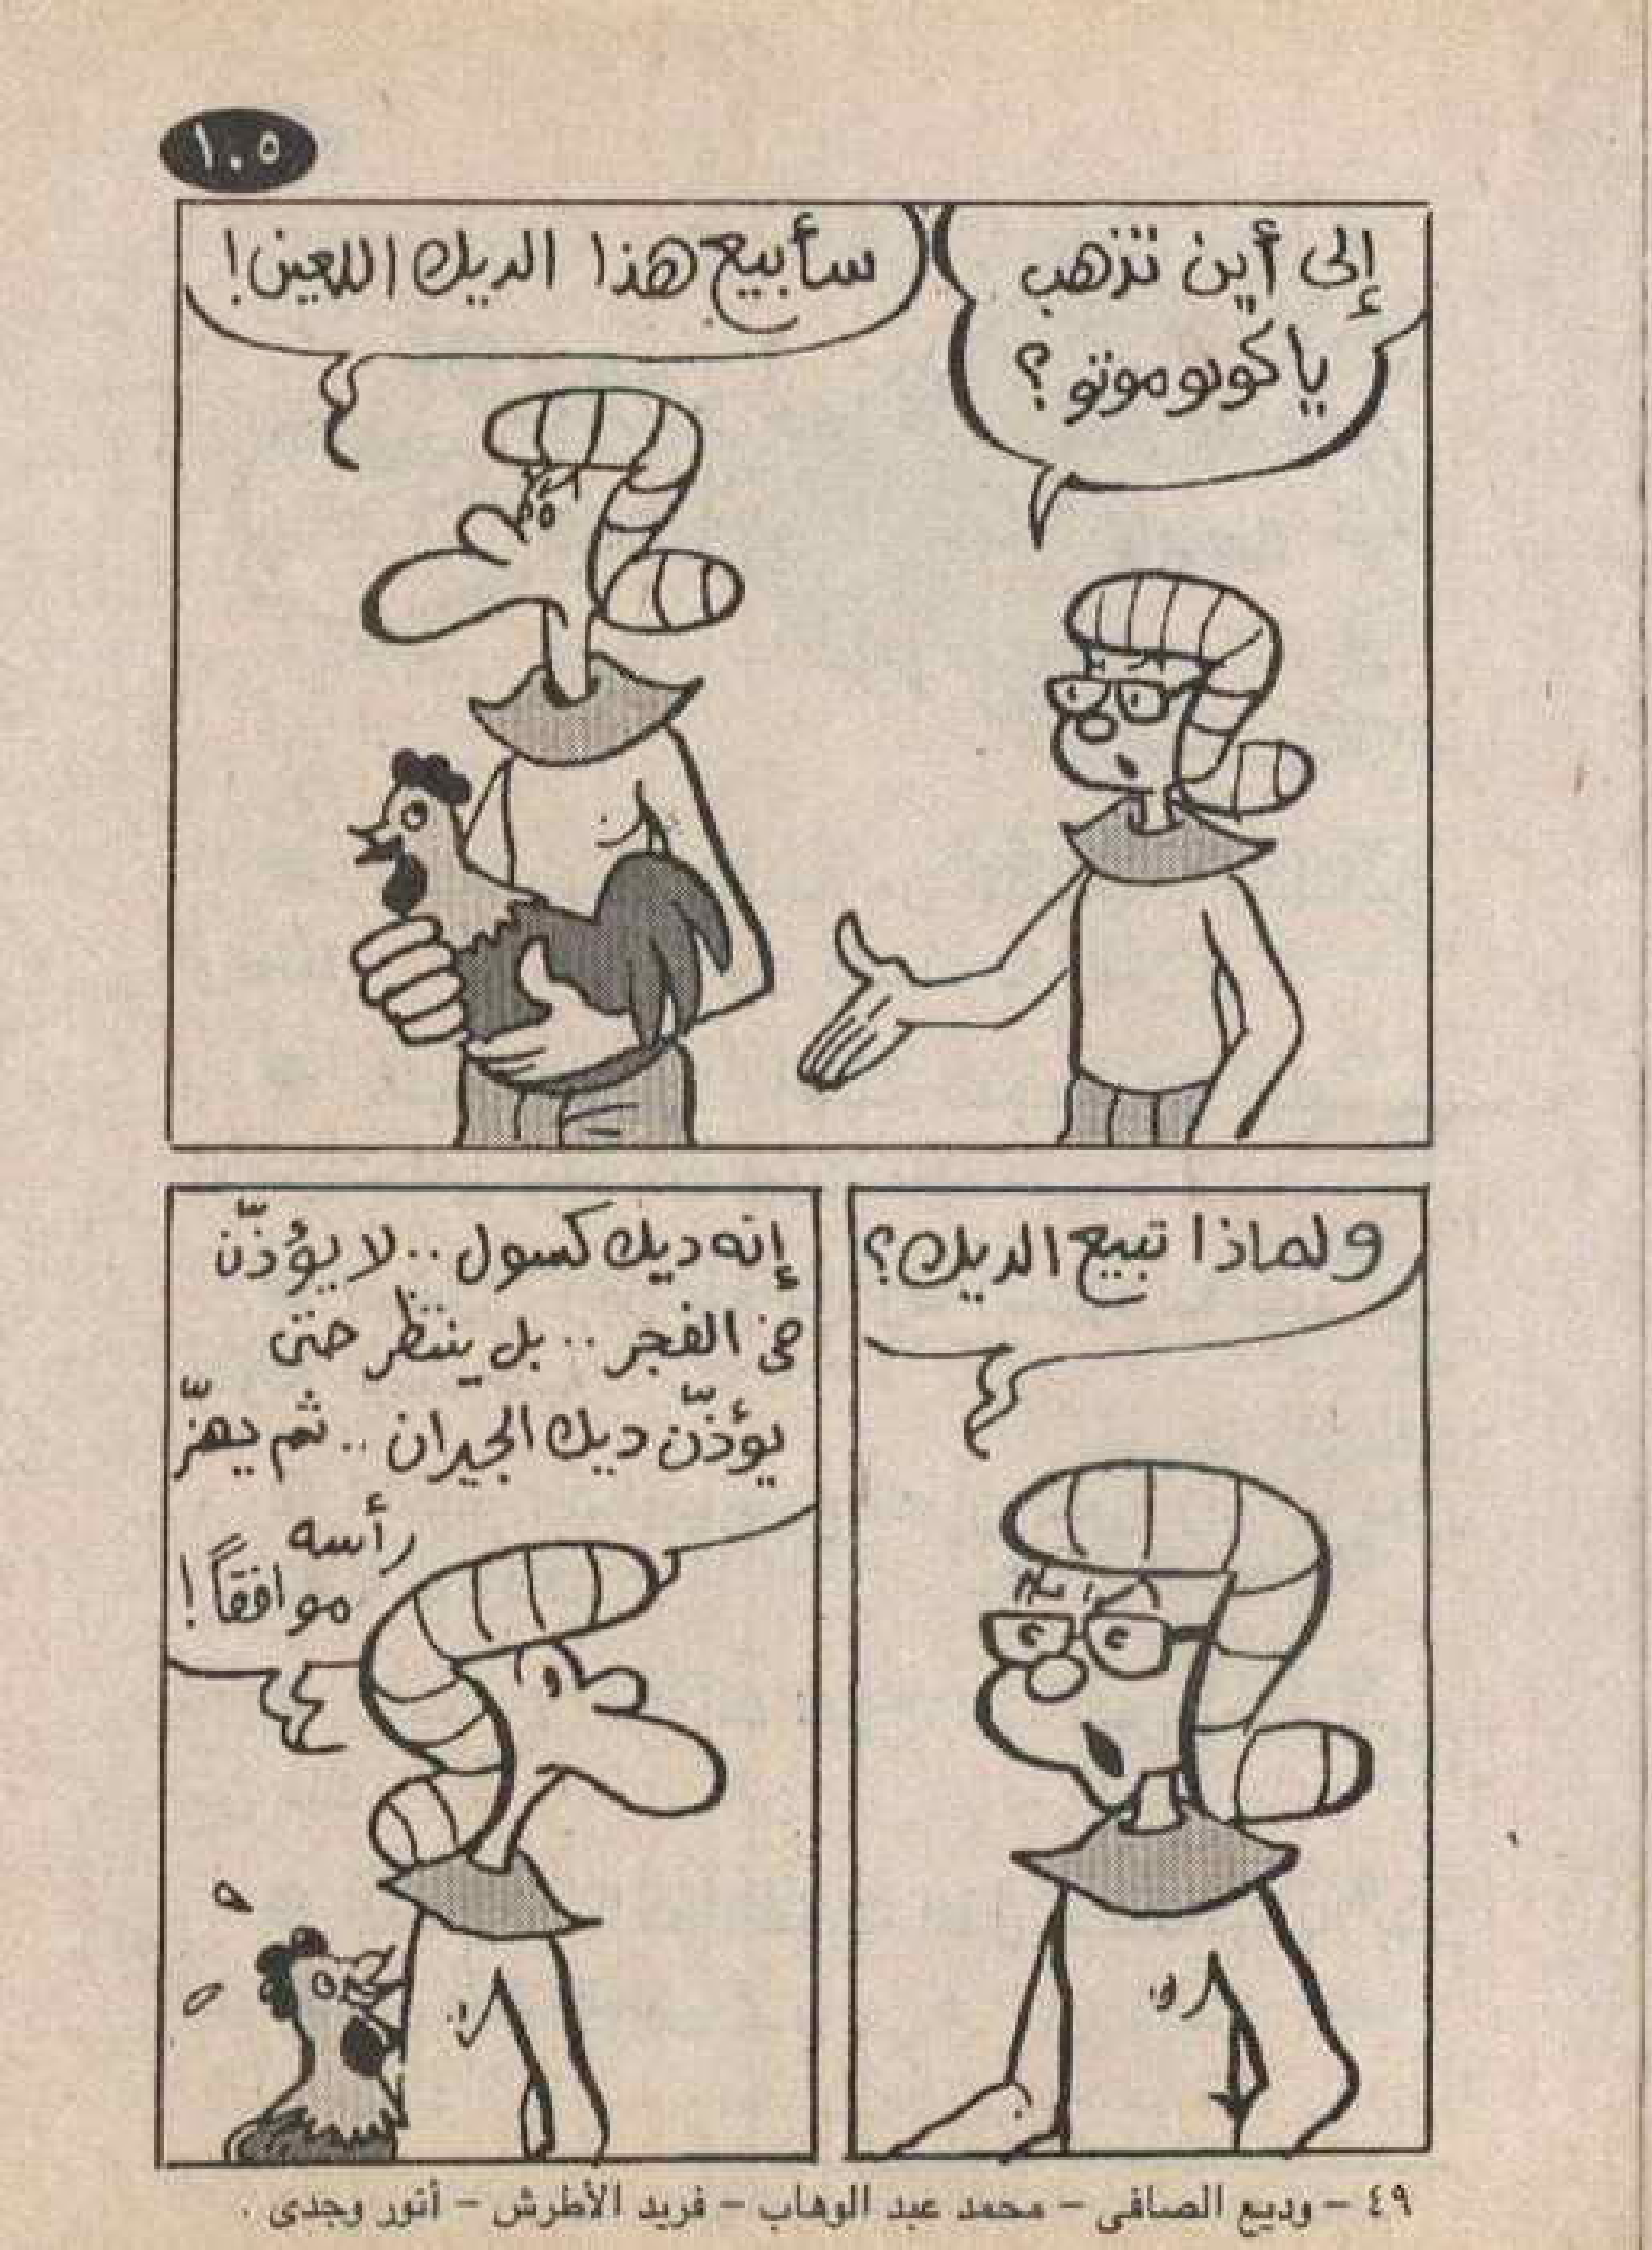 ١٠٥
إلى أين تذهب
ياكوبوموتو؟
سأبيع هذا الديك اللعين!
ولماذا تبيع الديك؟
إنه ديك كسول .. لا يؤذّن
فى الفجر .. بل ينتظر حتى
يؤذّن ديك الجيران .. ثم يهزّ
رأسه
موافقاً!
٤٩ - وديع الصافى - محمد عبد الوهاب - فريد الأطرش - أنور وجدى .